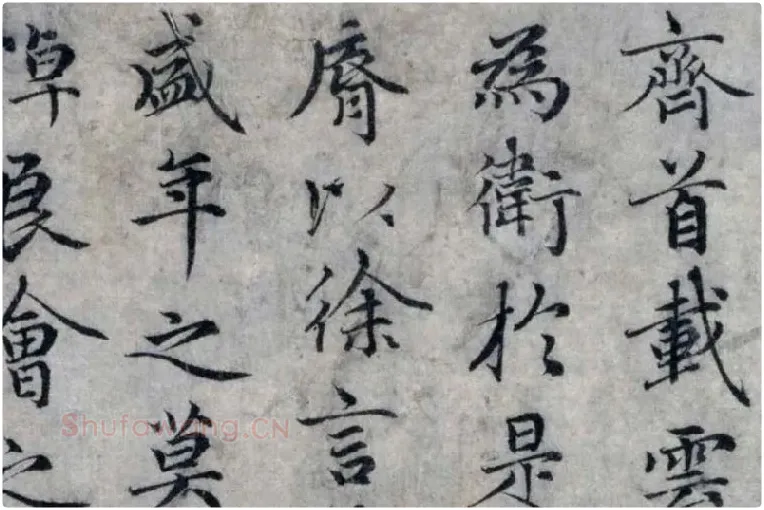 齊首載雲
為衛於是
脣以徐言
盛年之莫
悼良會之
Shufawang.CN